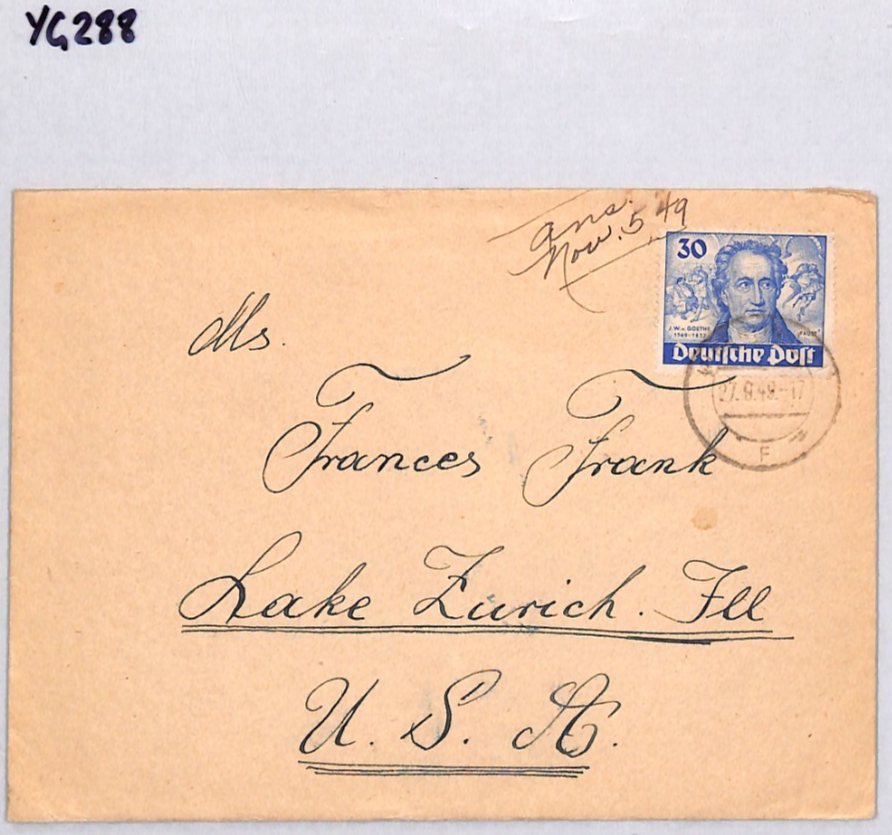 YG288
ans.
Nov. 5 49
30
J.W.v. GOETHE
1749-1832
FAUST
Deutsche Post
27.9.49.-17
F
Ms.
Frances Frank
Lake Zurich. Ill
U. S. A.